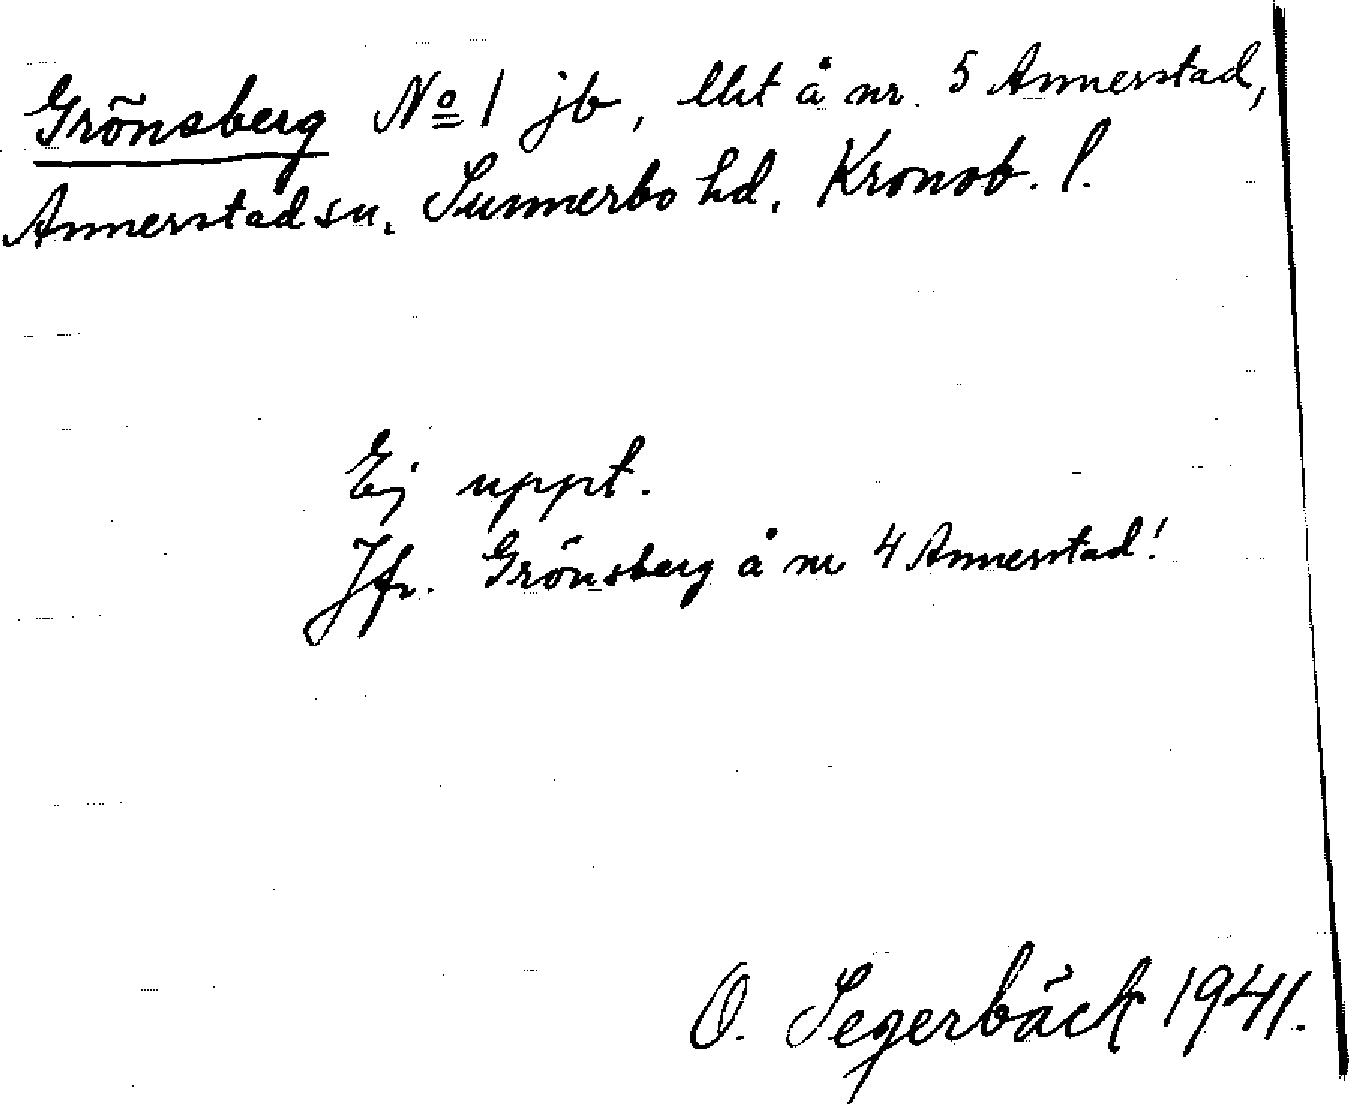 Grönsberg No 1 jb, lht å nr. 5 Annerstad,
Annerstad sn, Sunnerbo hd. Kronob. l.
Ej uppt.
Jfr. Grönsberg å nr 4 Annerstad!
O. Segerbäck 1941.